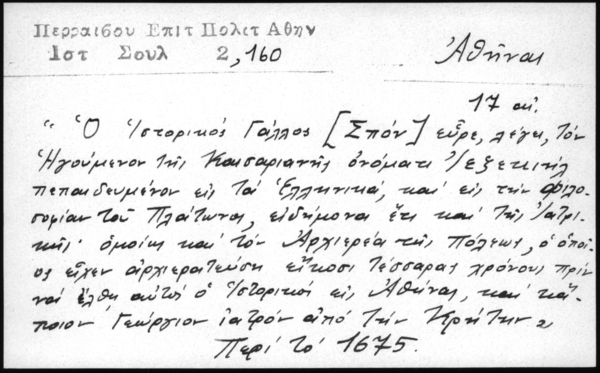 Περραιβου Επιτ Πολιτ Αθην
Ιστ Σουλ 2,160
Ἀθῆναι
17 αἰ.
" Ὁ Ἱστορικός Γάλλος [Σπόν] εὗρε, λέγει, τόν
Ἡγούμενον τῆς Καισαριανῆς ὀνόματι Ἰεζεκιήλ
πεπαιδευμένον εἰς τά Ἑλληνικά, καί εἰς τήν φιλο-
σοφίαν τοῦ Πλάτωνος, εἰδήμονα ἔτι καί τῆς Ἰατρι-
κῆς· ὁμοίως καί τόν Ἀρχιερέα τῆς πόλεως, ὁ ὁποῖ-
ος εἶχεν ἀρχιερατεύσῃ εἴκοσι τέσσαρας χρόνους πρίν
νά ἔλθῃ αὐτός ὁ Ἱστορικός εἰς Ἀθήνας, καί κά-
ποιον Γεώργιον ἰατρόν ἀπό τήν Κρήτην "
Περί τό 1675.